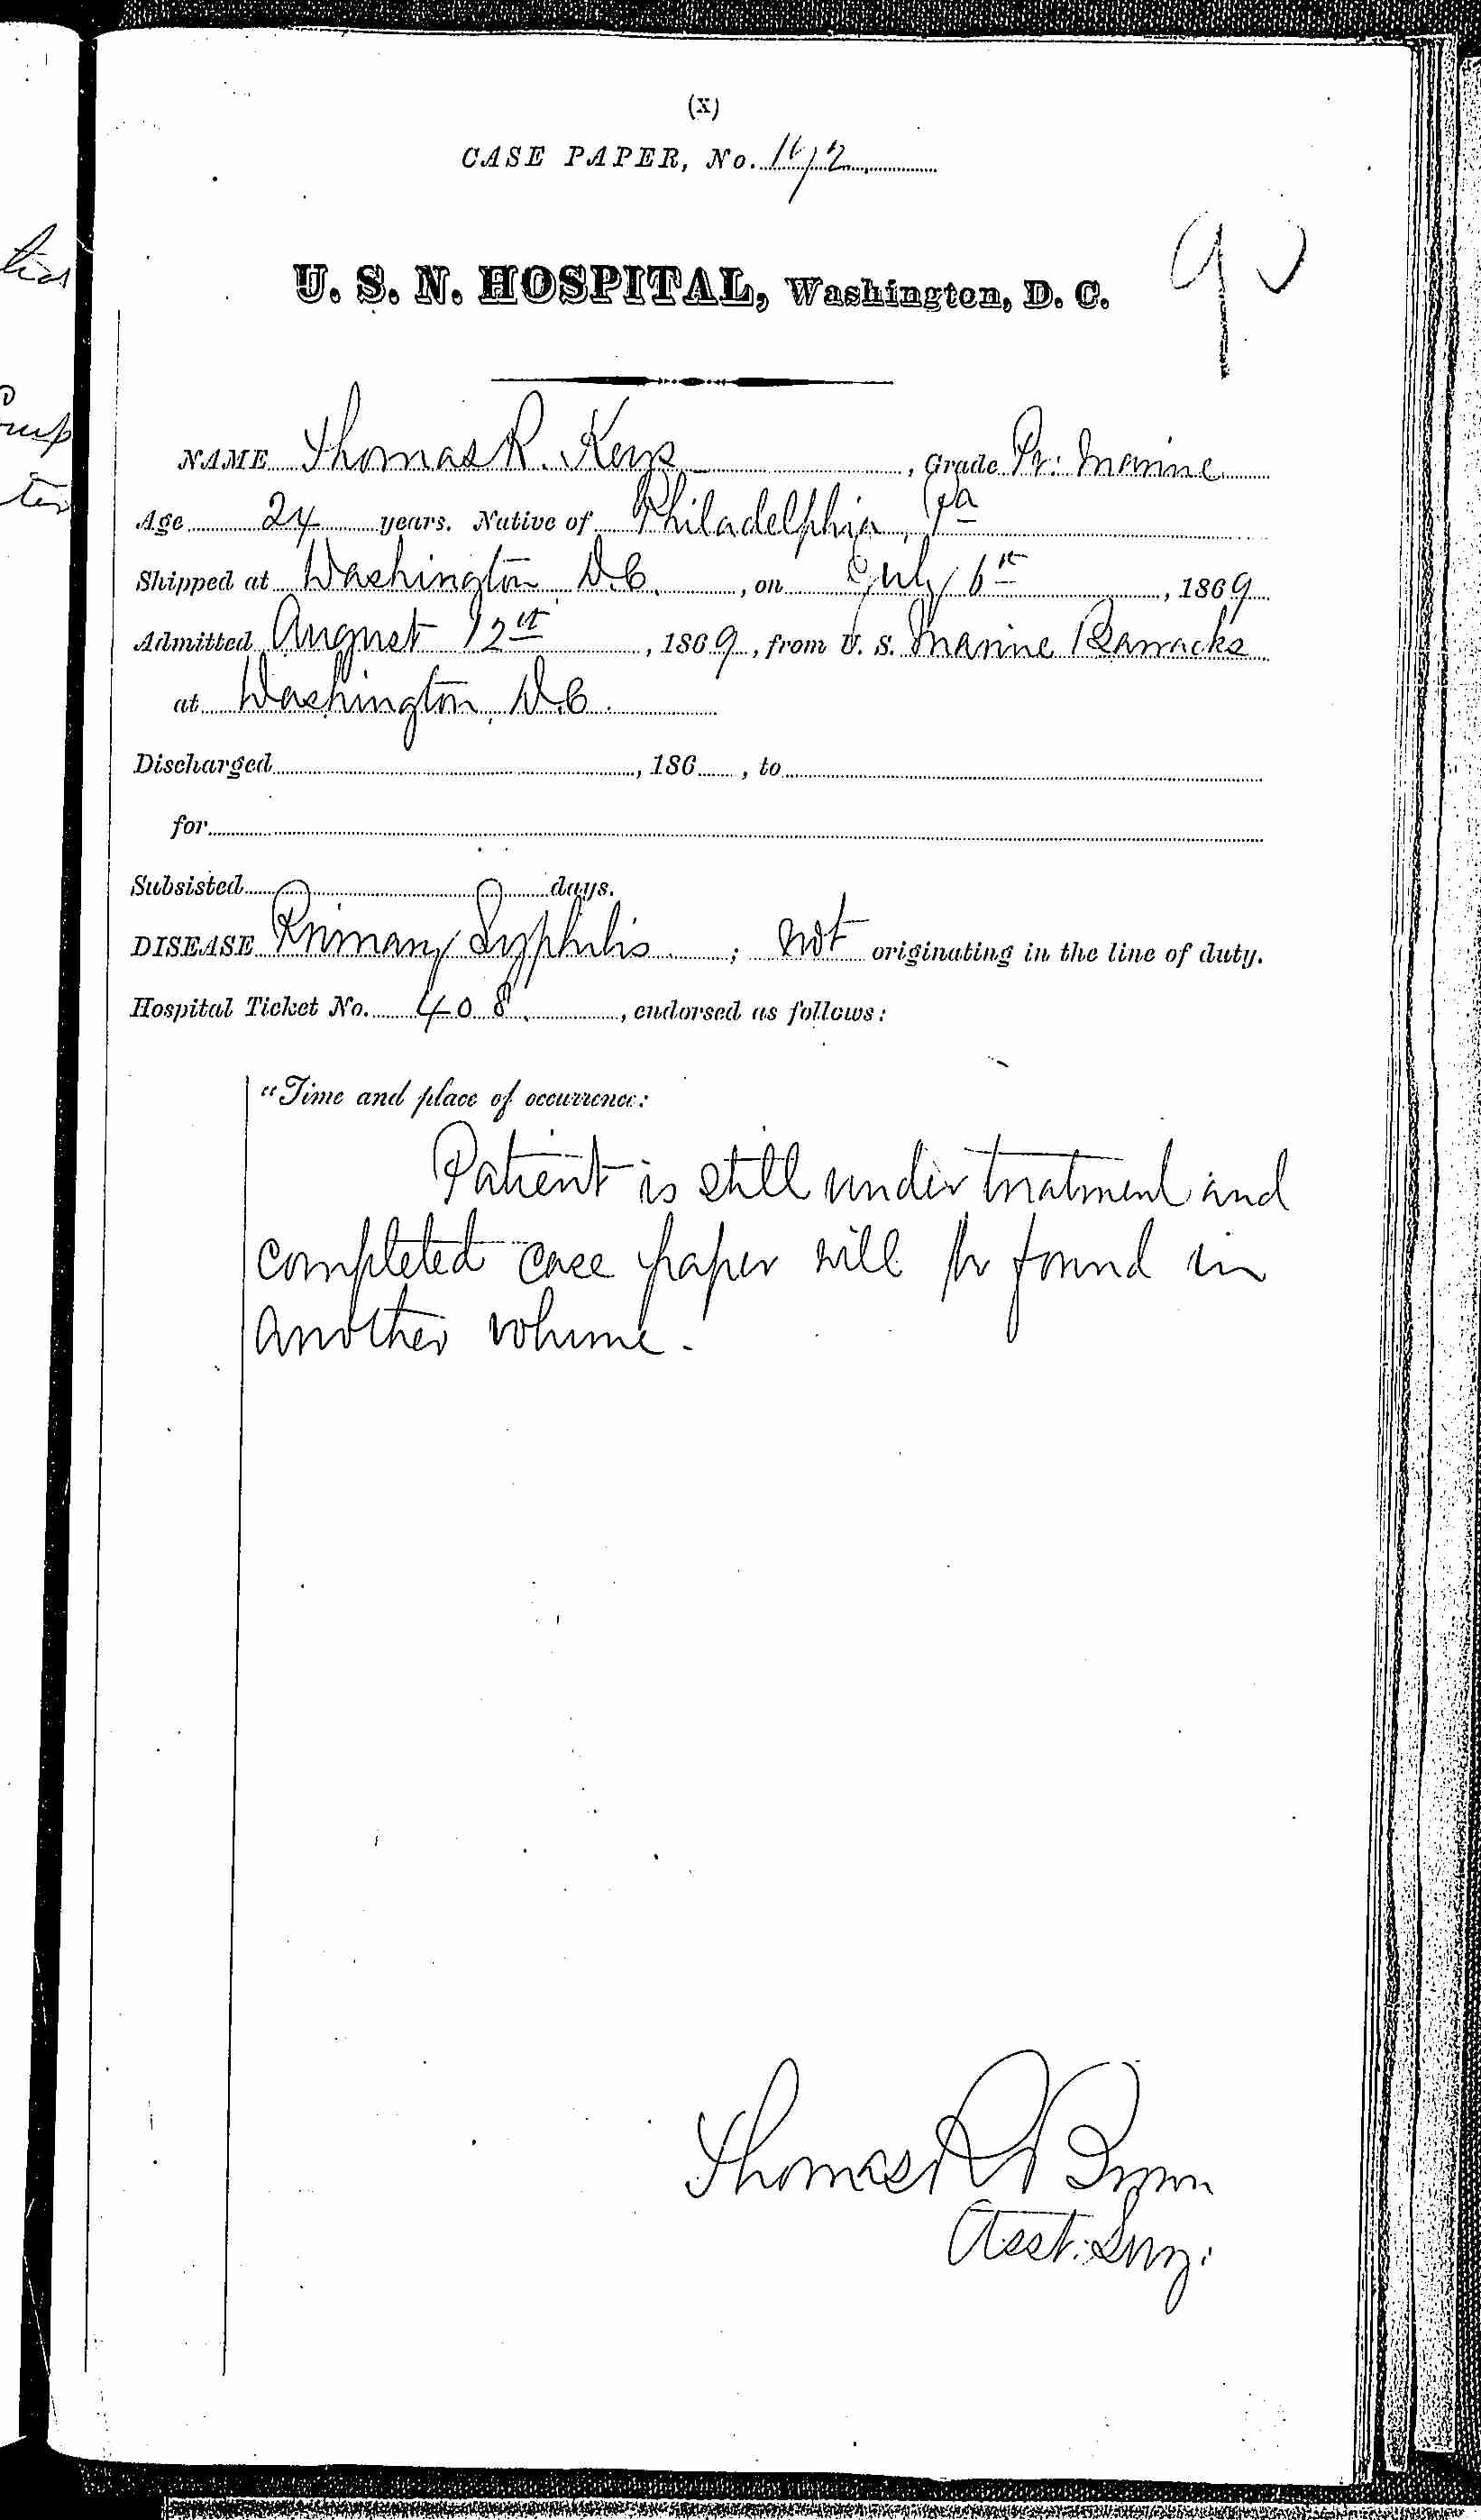 (X)
CASE PAPER, No.
U. S. N. HOSPITAL, Washington, D. C.
NAME Thomas R. Keys, Grade Pr: Marine
Age 24 years. Native of Philadelphia, Pa
Shipped at Washington D.C., on July 6th, 1869
Admitted August 12th, 1869, from U. S. Marine Barracks
at Washington, D.C.
Discharged, 186 , to
for
Subsisted days.
DISEASE Primary Syphilis ; not originating in the line of duty.
Hospital Ticket No. 408., endorsed as follows:
"Time and place of occurrence:
Patient is still under treatment and
completed case paper will be found in
another volume.
Thomas R Brown
Asst. Surg.